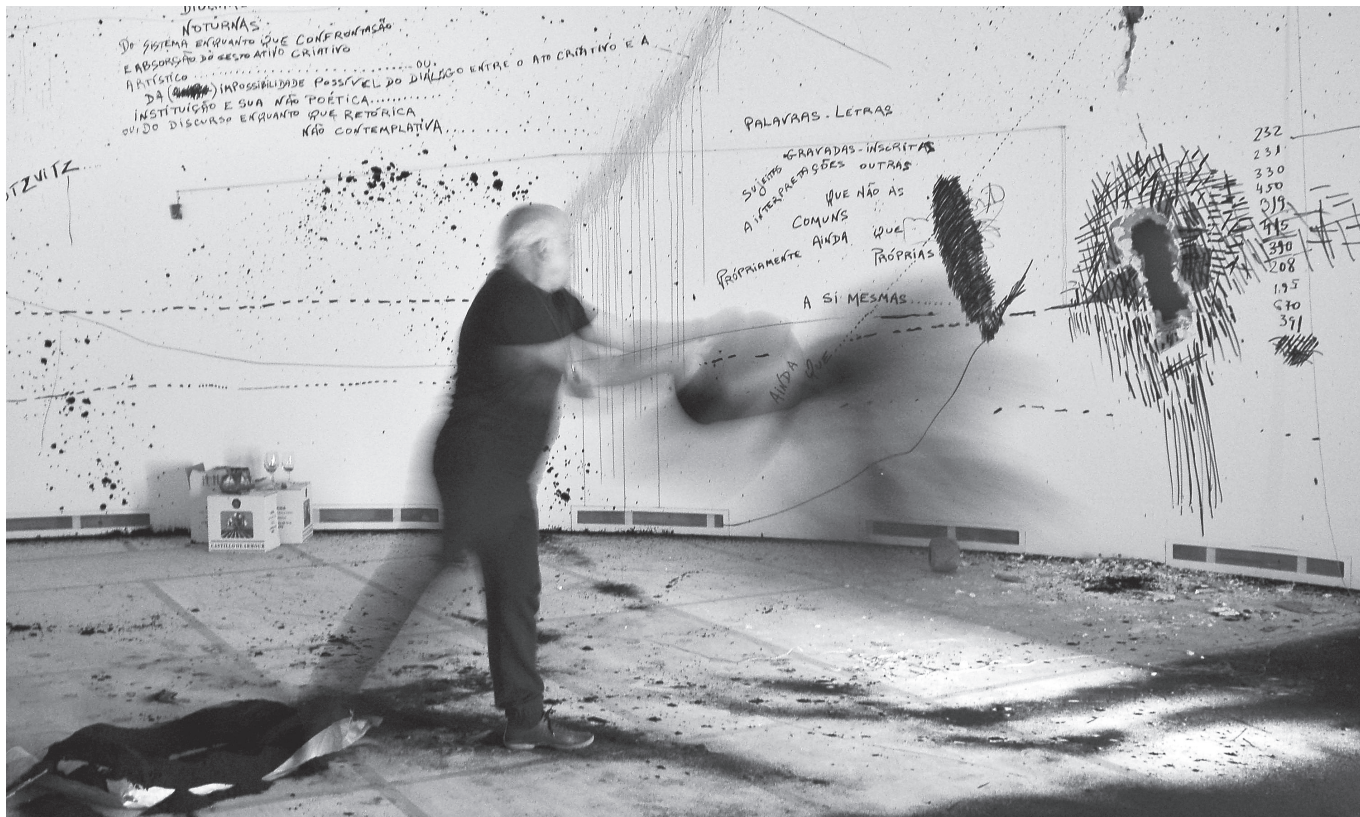 NOTURNAS
DO SISTEMA ENQUANTO QUE CONFRONTAÇÃO
E ABSORÇÃO DO GESTO ATIVO CRIATIVO
ARTÍSTICO..............................OU.
DA () IMPOSSIBILIDADE POSSÍVEL DO DIÁLOGO ENTRE O ATO CRIATIVO E A
INSTITUIÇÃO E SUA NÃO POÉTICA.........
OU. DO DISCURSO ENQUANTO QUE RETÓRICA
NÃO CONTEMPLATIVA..........
TZVITZ
PALAVRAS-LETRAS
GRAVADAS-INSCRITAS
SUJEITAS
A INTERPRETAÇÕES OUTRAS
QUE NÃO ÀS
COMUNS
PROPRIAMENTE AINDA QUE
PRÓPRIAS
A SI MESMAS......
AINDA QUE
232
231
330
450
319
415
390
208
195
670
391